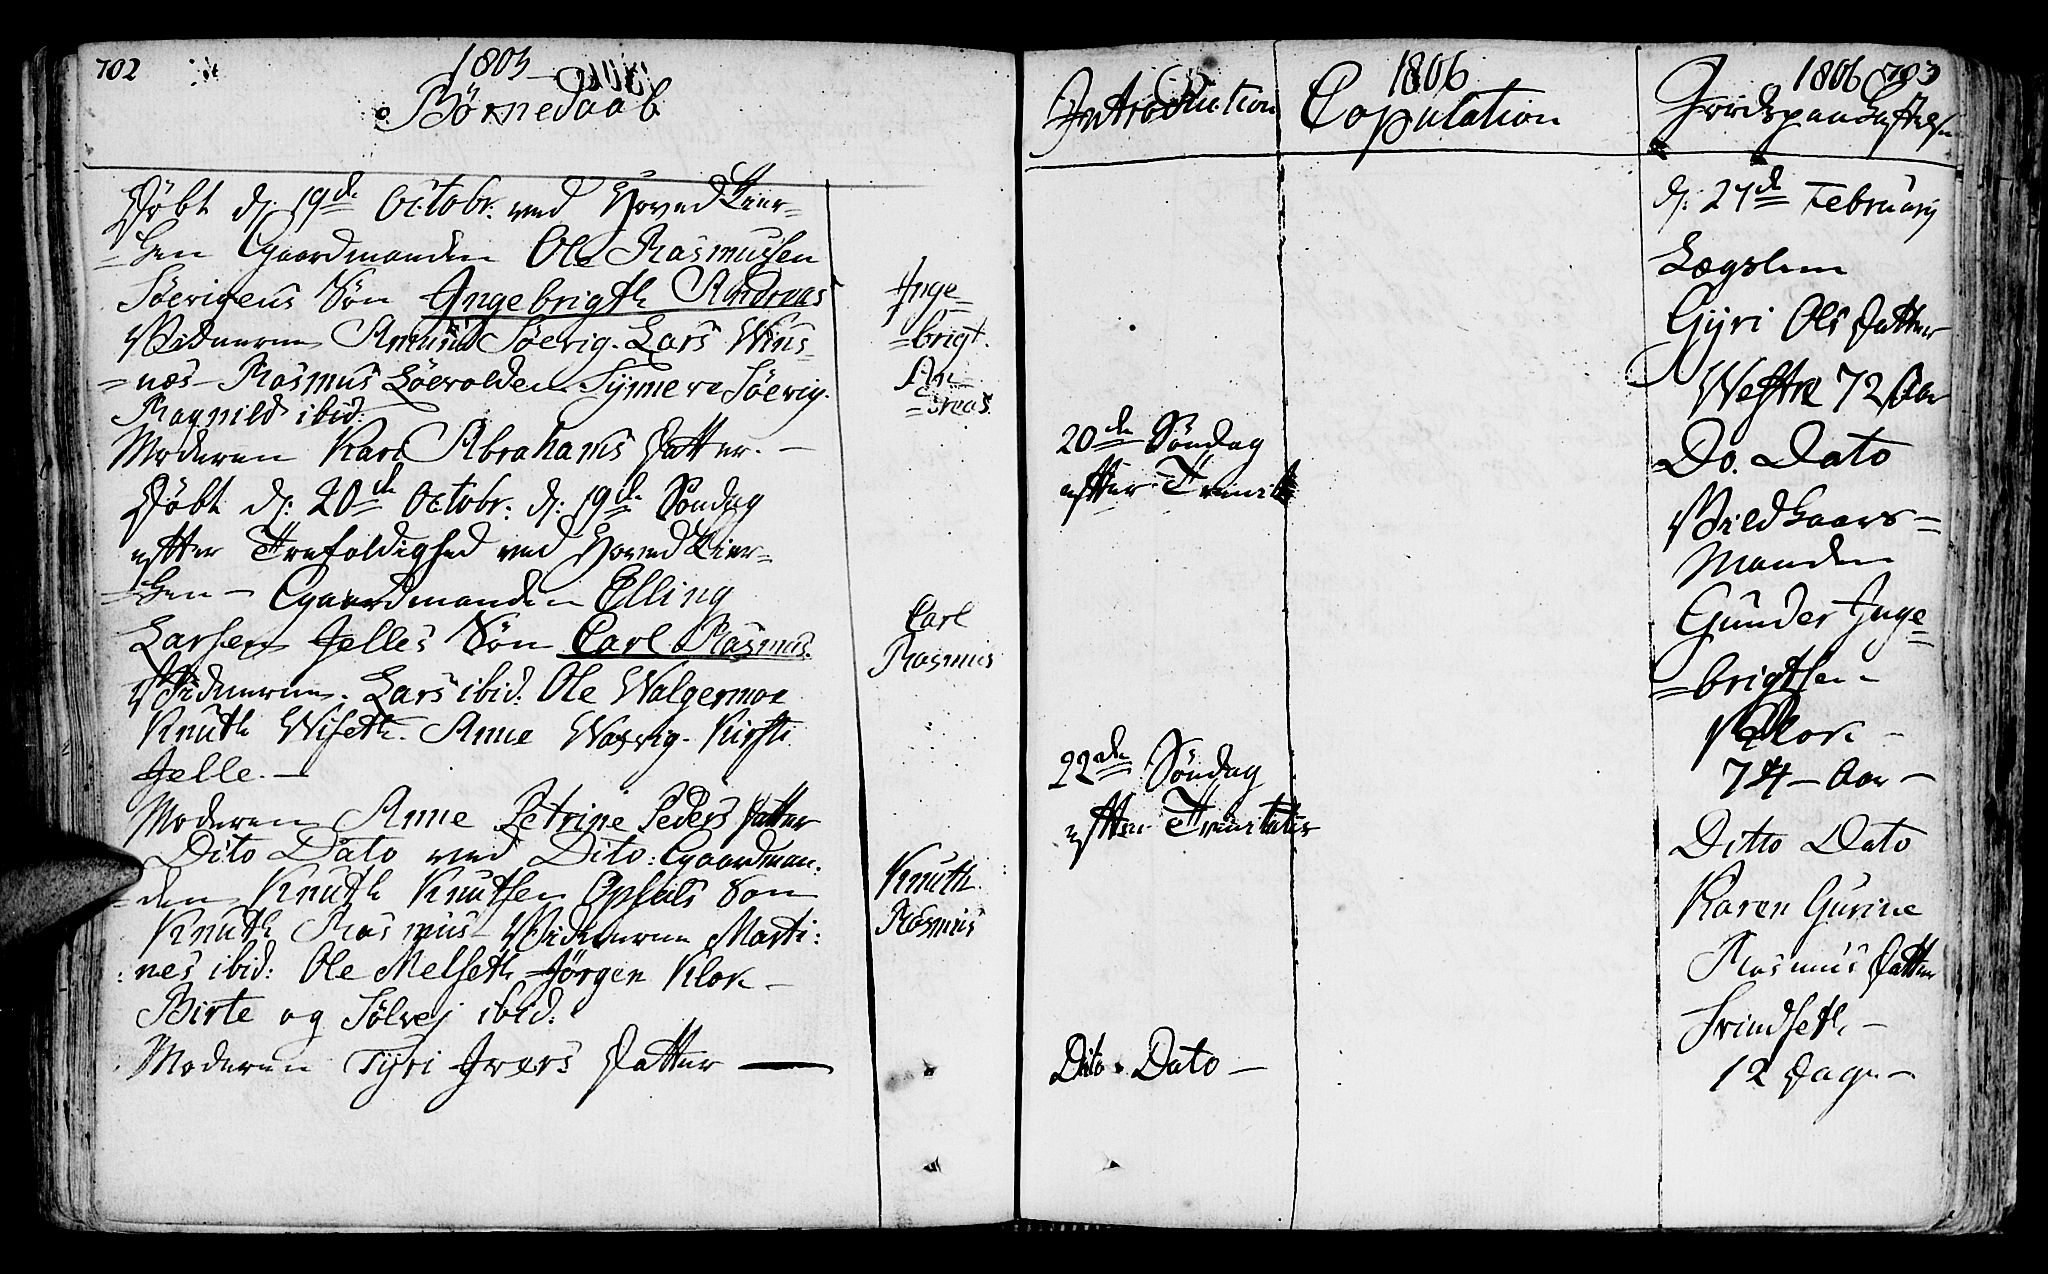 702
1805
Børnedaab
Døbt d: 19de Octobr. ved Hoved Kier-
=ken Gaardmanden Ole Rasmussen
Söevigens Søn Ingebrigth Andreas
Vidnerne Amund Söevig. Lars Wiis-
=næs- Rasmus Löevolden Synneve Söevig.
Ragnild ibid:
Moderen Kari Abrahams Datter. -
Døbt d: 20de Octobr: d: 19de Søndag
efter Trefoldighed ved Hoved Kier=
=ken - Gaardmanden Elling
Larsen Jelles Søn Carl Rasmus.
Vidnerne. Lars ibid: Ole Walgermoe
Knuth Wiseth. Anne Waxvig. Kirsti
Jelle. -
Moderen Anne Petrine Peders Datter
Dito Dato ved Dito: Gaardman:
=den Knuth Knutsen Opsals Son
Knuth Rasmus- Vidnerne Marti:
:nes ibid: Ole Melseth Jörgen Klok -
Birte og Sölvej ibid:
Moderen Tyri Ivers Datter -
Inge=
=brigt.
An=
=dreas.
Carl
Rasmus
Knuth
Rasmus
Introduction
20de Søndag
efter Trinit
22de Søndag
efter Trinitatis
Dito Dato -
1806
Copulation
1806
703
Jordspaakastelse
d: 27de February
Lægslem
Gyri Ols Datter
Westre 72 Aar
Do. Dato
Vilkaars=
Manden
Gunder Inge=
=brigtsen
Klok -
74 - Aar -
Ditto Dato
Karen Gurine
Rasmus Datter
- 
12 Dage -